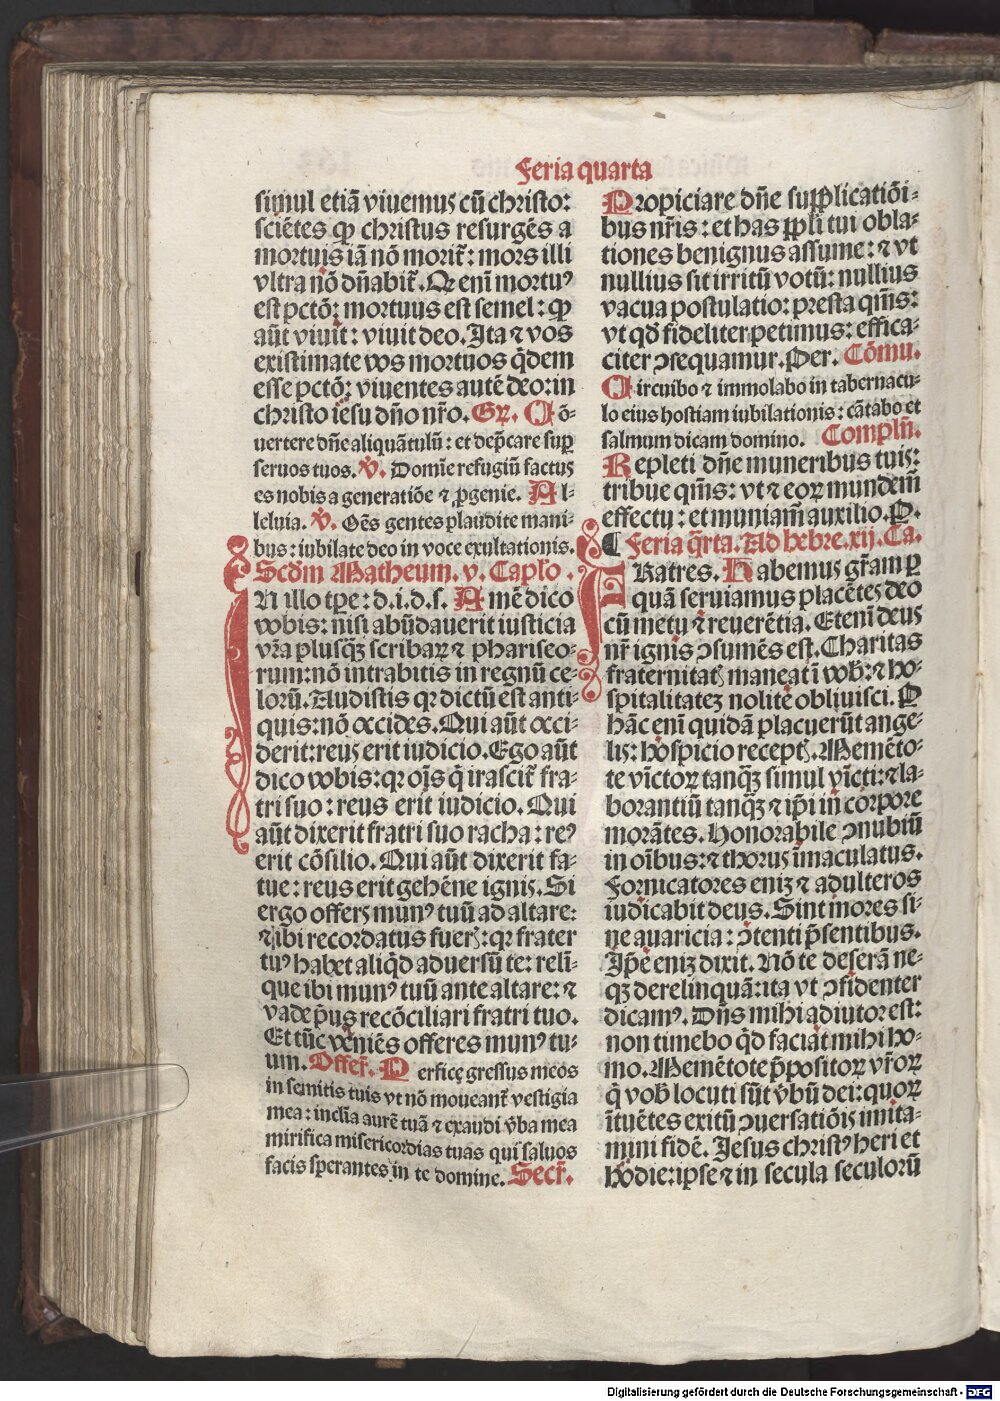 Feria quarta
simul etiā viuemus cū christo:
sciētes ꝙ christus resurgēs a
mortuis iā nō morit᷑: mors illi
vltra nō dn̄abit᷑. Qꝫ enī mortuꝰ
est pctō: mortuus est semel: ꝙ
aūt viuit: viuit deo. Ita ⁊ vos
existimate vos mortuos q̄dem
esse pctō: viuentes autē deo: in
christo iesu dn̄o nr̄o. Gꝛ. Cō-
uertere dn̄e aliquātulū: et dep̄care suꝑ
seruos tuos. v̄. Domīe refugiū factus
es nobis a generatiōe ⁊ ꝓgenie. Al-
leluia. v̄. Om̄s gentes plaudite mani-
bus: iubilate deo in voce exultationis.
Scd̄m Matheum. v. Caplo.
IN illo tꝑe: d. i. d. s. Amē dico
vobis: nisi abūdauerit iusticia
vr̄a plusqꝫ scribaꝝ ⁊ phariseo-
rum: nō intrabitis in regnū ce-
lorū. Audistis qꝛ dictū est anti-
quis: nō occides. Qui aūt occi-
derit: reus erit iudicio. Ego aūt
dico vobis: qꝛ oīs q̄ irascit᷑ fra-
tri suo: reus erit iudicio. Qui
aūt dixerit fratri suo racha: reꝰ
erit cōsilio. Qui aūt dixerit fa-
tue: reus erit gehēne ignis. Si
ergo offers munꝰ tuū ad altare:
⁊ ibi recordatus fuerꝭ: qꝛ frater
tuꝰ habet aliq̄d aduersū te: reli-
que ibi munꝰ tuū ante altare: ⁊
vade pͥus recōciliari fratri tuo.
Et tūc veniēs offeres munꝰ tu-
um. Offer᷑. Perfice gressus meos
in semitis tuis vt nō moueant᷑ vestigia
mea: inclīa aurē tuā ⁊ exaudi v̄ba mea
mirifica misericordias tuas qui saluos
facis sperantes in te domine. Secr᷑.
Propiciare dn̄e supplicatiōi-
bus nr̄is: et has ppl̄i tui obla-
tiones benignus assume: ⁊ vt
nullius sit irritū votū: nullius
vacua postulatio: presta qm̄s:
vt qd̄ fideliter petimus: effica-
citer ↄsequamur. Per. Cōmu.
Circuibo ⁊ immolabo in tabernacu-
lo eius hostiam iubilationis: cātabo et
salmum dicam domino. Compln̄.
Repleti dn̄e muneribus tuis:
tribue qm̄s: vt ⁊ eoꝝ mundem̄
effectu: et muniam᷑ auxilio. P.
¶ Feria q̄rta. Ad hebre. xij. Ca.
FRatres. Habemus gr̄am ꝑ
quā seruiamus placētes deo
cū metu ⁊ reuerētia. Etenī deus
nr̄ ignis ↄsumēs est. Charitas
fraternitatꝭ maneat ī vob᷑: ⁊ ho-
spitalitatez nolite obliuisci. P
hāc enī quidā placuerūt ange-
lis: hospicio receptꝭ. Memēto-
te vīctoꝝ tanqꝫ simul vīcti: ⁊ la-
borantiū tanqꝫ ⁊ ip̄i in corpore
morātes. Honorabile ↄnubiū
in oībus: ⁊ thorus īmaculatus.
Fornicatores eniz ⁊ adulteros
iudicabit deus. Sint mores si-
ne auaricia: ↄtenti p̄sentibus.
Ip̄e eniz dixit. Nō te deserā ne-
qꝫ derelinquā: ita vt ↄfidenter
dicamꝰ. Dn̄s mihi adiutor est:
non timebo q̄d faciat mihi ho-
mo. Memētote p̄positoꝝ vr̄oꝝ
q̄ vob᷑ locuti sūt v̄bū dei: quoꝝ
ītuētes exitū ↄuersatiōis imita-
mini fidē. Jesus christꝰ heri et
hodie: ipse ⁊ in secula seculorū
Digitalisierung gefördert durch die Deutsche Forschungsgemeinschaft - DFG